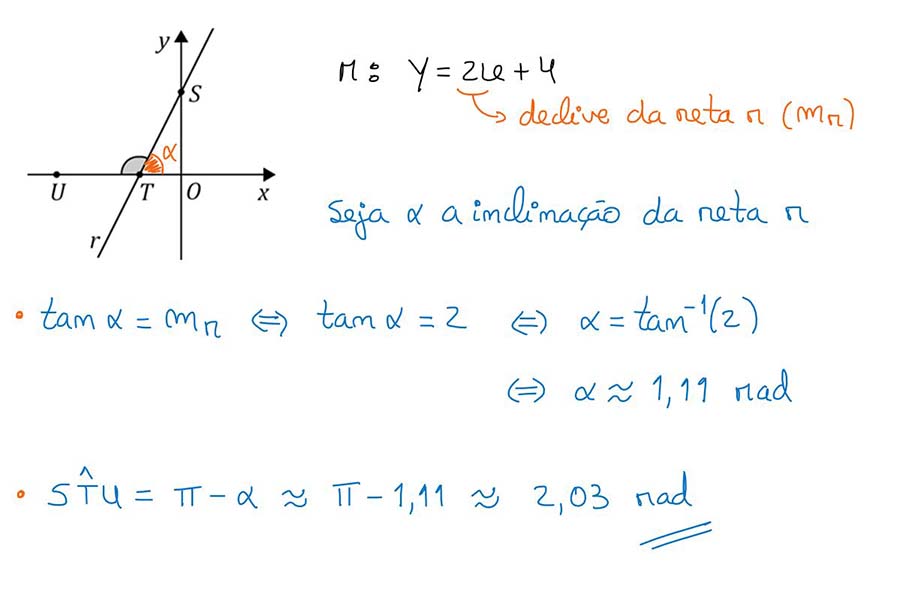 y
S
α
U T O x
r
r: y = 2x + 4
declive da reta r (mr)
Seja α a inclinação da reta r
• tan α = mr ⇔ tan α = 2 ⇔ α = tan⁻¹(2)
⇔ α ≈ 1,11 rad
• ST̂U = π - α ≈ π - 1,11 ≈ 2,03 rad